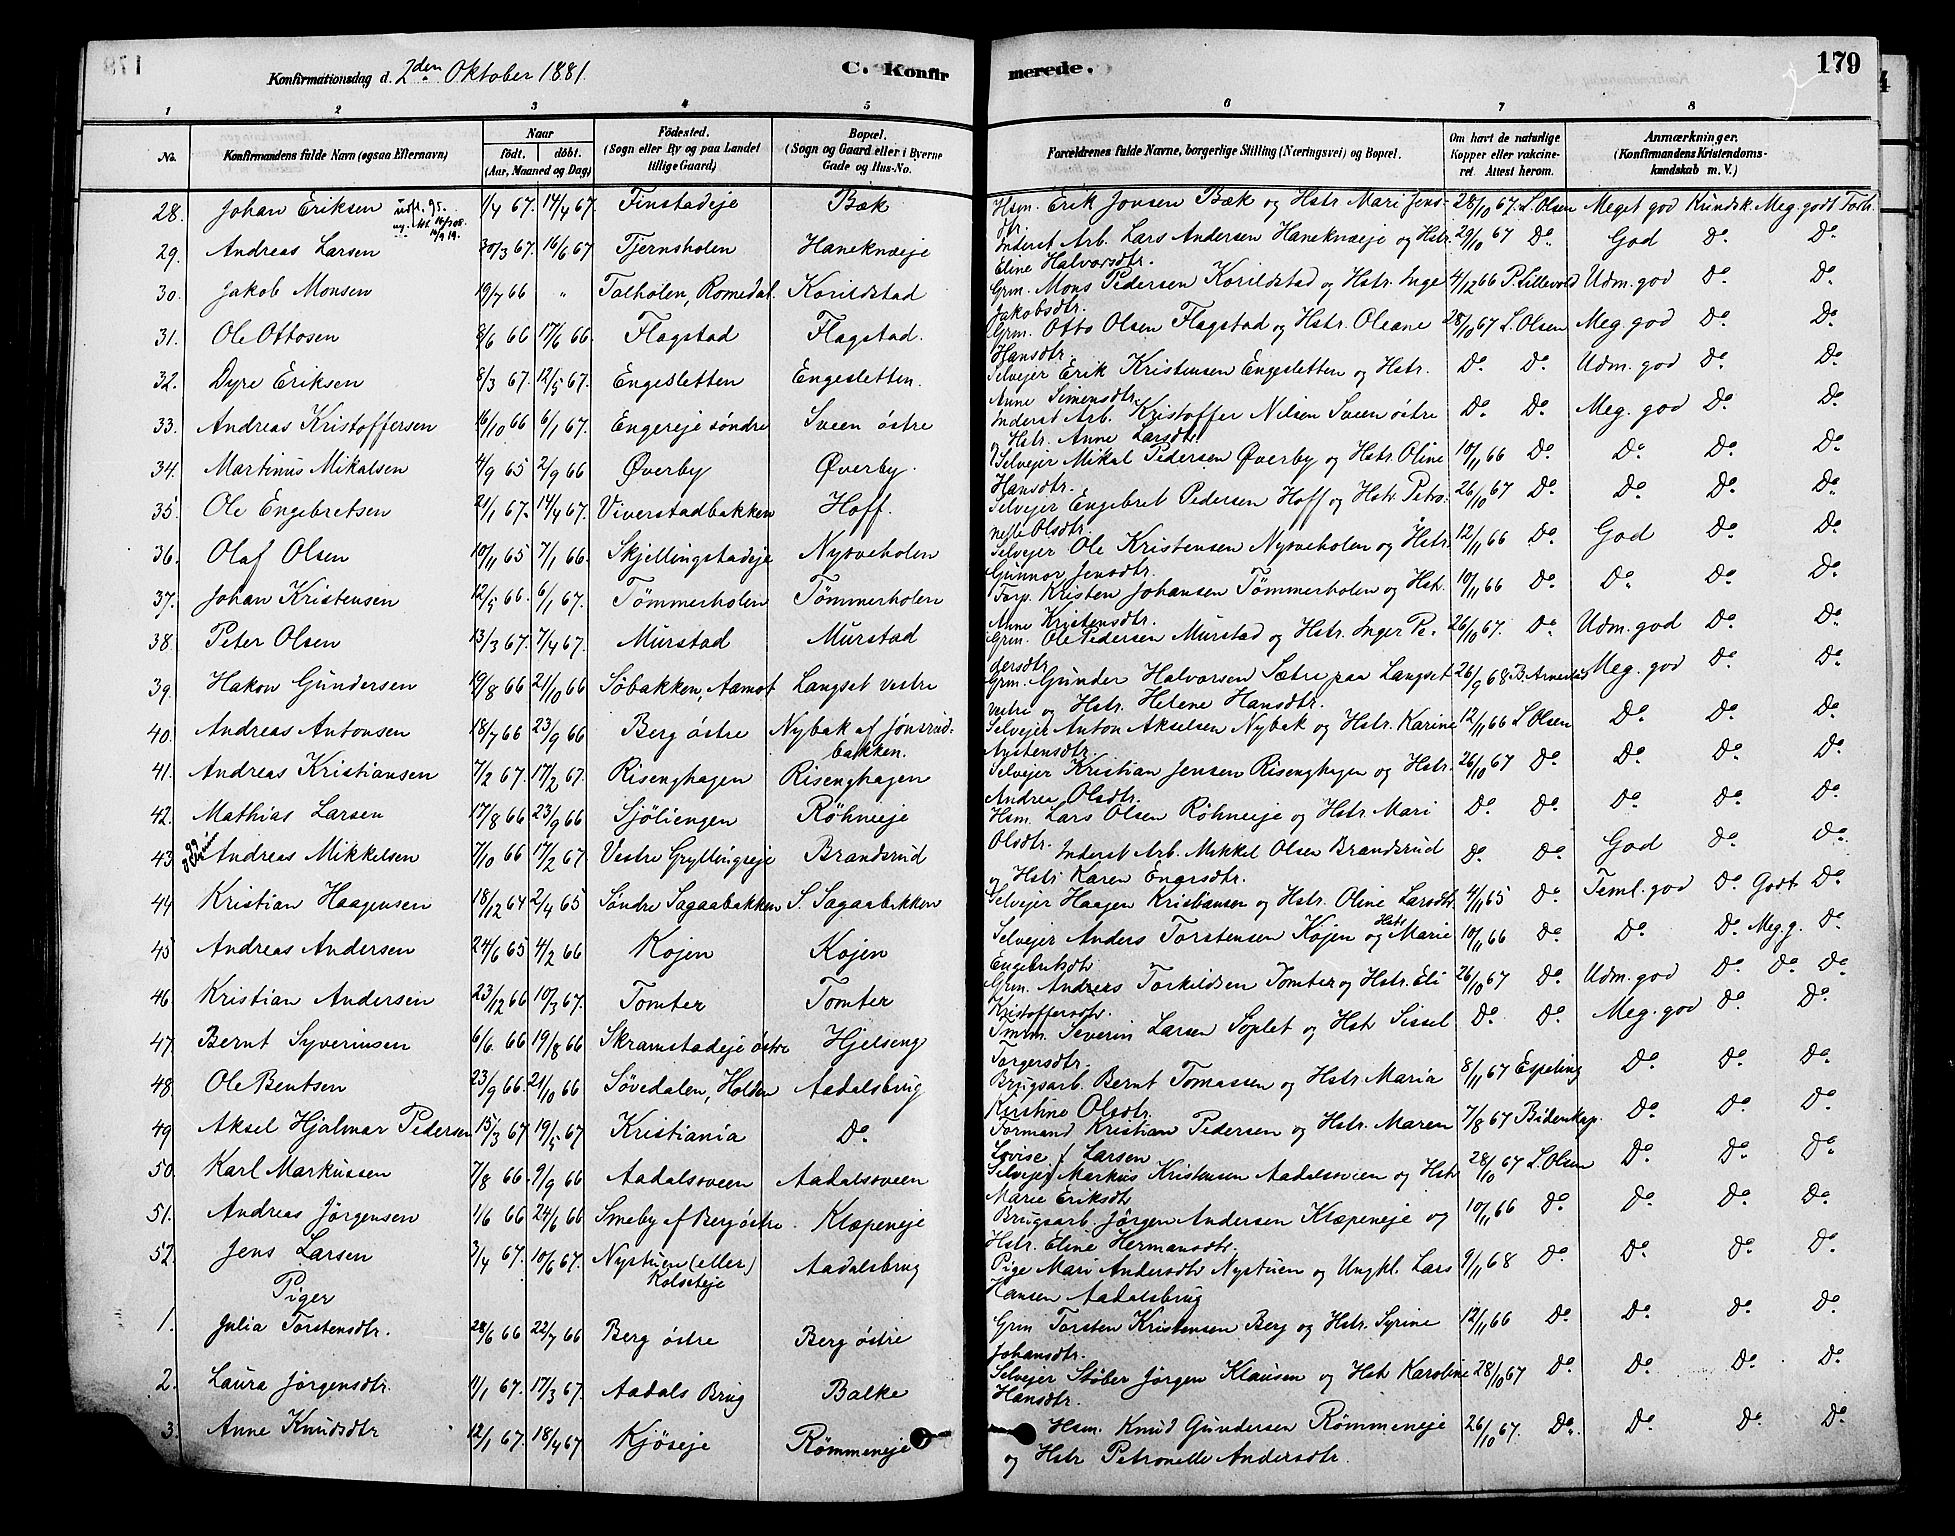 Konfirmationsdag d. 2den Oktober 1881.
C. Konfir
merede.
179
1 2 3 4 5 6 7 8
No. Konfirmandens fulde Navn (ogsaa Efternavn) Naar født. døbt. (Aar, Maaned og Dag) Fødested. (Sogn eller By og paa Landet tillige Gaard) Bopæl. (Sogn og Gaard eller i Byerne Gade og Hus-No. Forældrenes fulde Navne, borgerlige Stilling (Næringsvei) og Bopæl. Om havt de naturlige Kopper eller vakcineret. Attest herom. Anmærkninger. (Konfirmandens Kristendomskundskab m. V.)
28. Johan Eriksen 1/4 67. 14/4 67. Finstadeje Bæk Hsm. Erik Jonsen Bæk og Hstr Mari Jens- 28/10 67. L. Olsen Meget god Kundsk. Meg godt Forh.
29. Andreas Larsen 30/3 67. 16/6 67 Tjernsholen Haneknæeje Inderst Arb. Lars Andersen Haneknæeje og Hstr. 29/10 67 Do. God Do. Do.
Eline Halvorsdtr.
30. Jakob Monsen 19/7 66 " Talholen, Romedal Korildstad Grm. Mons Pedersen Korildstad og Hstr. Inge 4/12 66 P. Lillevold Udm. god Do. Do.
Jakobsdtr.
31. Ole Ottosen 8/6 66 17/6 66. Flagstad Flagstad. Grm. Otto Olsen Flagstad og Hstr. Oleane 28/10 67 L. Olsen Meg. god Do. Do.
Hansdtr.
32. Dyre Eriksen 8/3 67. 12/5 67. Engesletten Engesletten. Selvejer Erik Kristensen Engesletten og Hstr. Do. Do. Udm. god Do. Do.
Anne Simensdtr.
33. Andreas Kristoffersen 16/10 66 6/1 67. Engereje søndre Sveen østre Inderst Arb. Kristoffer Nilsen Sveen østre Do. Do. Meg. god Do. Do.
Hstr. Anne Larsdtr
34. Martinus Mikalsen 4/9 65 2/9 66 Øverby Øverby. Selvejer Mikal Pedersen Øverby og Hstr. Oline 10/11 66 Do. Do. Do. Do.
Hansdtr.
35. Ole Engebretsen 21/1 67. 14/4 67. Viverstadbakken Hoff. Selvejer Engebret Pedersen Hoff og Hstr. Petro- 26/10 67 Do. Do. Do. Do.
nelle Olsdtr.
36. Olaf Olsen 10/11 65 7/1 66. Skjellingstadeje Nysveholen Selvejer Ole Kristensen Nysveholen og Hstr. 12/11 66 Do. God Do. Do.
Gunnor Jensdtr.
37. Johan Kristensen 12/5 66. 6/1 67. Tømmerholen Tømmerholen Torp. Kristen Johansen Tømmerholen og Hstr. 10/11 66 Do. Do. Do. Do.
Anne Kristensdtr.
38. Peter Olsen 13/3 67. 7/4 67. Murstad Murstad Grm. Ole Pedersen Murstad og Hstr. Inger Pe- 26/10 67. Do. Udm. god Do. Do.
dersdtr.
39. Hakon Gundersen 19/8 66 21/10 66 Søbakken, Aamot Langset vestre Grm. Gunder Halvorsen Sætre paa Langset 26/9 68 Meg. god Do. Do.
vestre og Hstr. Helene Hansdtr.
40. Andreas Antonsen 18/7 66 23/9 66 Berg østre Nybak af Jønsrudbakken. Selvejer Anton Akselsen Nybak og Hstr. Karine 12/11 66 L. Olsen Do. Do. Do.
Austensdtr.
41. Andreas Kristiansen 7/2 67. 17/2 67. Risenghagen Risenghagen Selvejer Kristian Jensen Risenghagen og Hstr. 26/10 67 Do. Do. Do. Do.
Andrea Olsdtr.
42. Mathias Larsen 17/8 66 23/9 66 Sjøliengen Røhneeje Hsm. Lars Olsen Røhneeje og Hstr. Mari Do. Do. Do. Do. Do.
Olsdtr.
43. Andreas Mikkelsen 7/10 66 17/2 67 Vestre Gryllingseje Brandsrud Inderst Arb. Mikkel Olsen Brandsrud Do. Do. God Do. Do.
og Hstr Karen Engersdtr.
44 Kristian Haagensen 18/12 64 2/4 65 Søndre Sagaabakken S. Sagaabakken Selvejer Haagen Kristiansen og Hstr. Oline Larsdtr. 4/11 65 Do. Teml. god Do. Godt Do.
45 Andreas Andersen 24/6 65 4/2 66 Kojen Kojen Selvejer Anders Torstensen Kojen og Hstr Marie 10/11 66 Do. Do. Do. Meg. g. Do.
Engebretsdtr
46. Kristian Andersen 23/12 66 10/3 67. Tomter Tomter Grm. Andreas Torkildsen Tomter og Hstr. Eli 26/10 67 Do. Udm. god Do. Do. Do.
Kristoffersdtr.
47. Bernt Syverinsen 6/6. 66 19/8 66 Skramstadeje østre Hjelseng Tmrm. Severin Larsen Soplet og Hstr Sissel Do. Do. Meg. god Do. Do.
Torgersdtr.
48. Ole Bentsen 23/9 66. 21/10 66 Søvedalen, Holden Aadalsbrug Brugsarb. Bernt Tomassen og Hstr. Maria 8/11 67 Espeling Do. Do. Do.
Kirstine Olsdtr.
49. Aksel Hjalmar Pedersen 15/3 67 19/5 67 Kristiania Do. Formand Kristian Pedersen og Hstr. Maren 7/8 67 Bidenkap. Do. Do. Do.
Lovise f. Larsen
50. Karl Markussen 7/8 66. 9/9 66 Aadalssveen Aadalssveen Selvejer Markus Kristensen Aadalssveen og Hstr 28/10 67 L. Olsen Do. Do. Do.
Marie Eriksdtr
51. Andreas Jørgensen 1/6 66 24/6 66 Smeby af Berg østre Klæpeneje Brugsarb. Jørgen Andersen Klæpeneje og 10/11 66 Do. Do. Do. Do.
Hstr. Eline Hermansdtr.
52. Jens Larsen 3/4 67. 10/6 67. Nystuen (eller) Kolseteje Aadalsbrug Pige Mari Andersdtr Nystuen og Ungkl. Lars 9/11 68 Do. Do. Do. Do.
Hansen Aadalsbrug
Piger
1. Julia Torstensdtr. 28/6 66 22/7 66 Berg østre Berg østre Grm Torsten Kristensen Berg og Hstr. Syrine 12/11 66 Do. Do. Do. Do.
Johansdtr.
2. Laura Jørgensdtr. 11/1 67. 17/3 67. Aadals Brug Balke Selvejer Støber Jørgen Klausen og Hstr Karoline 28/10 67 Do. Do. Do. Do.
Hansdtr.
3. Anne Knudsdtr 12/1 67. 18/4 67 Kjøseje Rømmeneje Hsm. Knud Gundersen Rømmeneje 26/10 67. Do. Do. Do. Do.
og Hstr Petronelle Andersdtr.